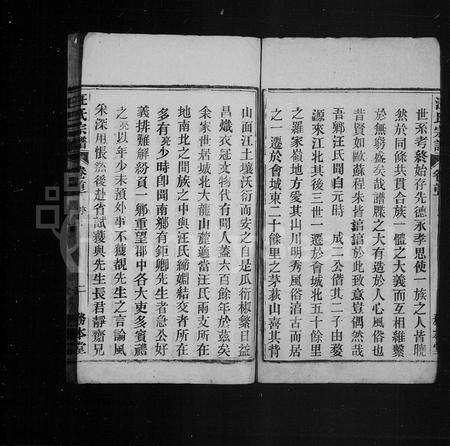 汪氏宗譜
卷首
世系考終始存先德永孝思使一族之人皆曉
然於同條共貫合族一體之大義而互相維繫
於無窮盛矣哉譜牒之大有造於人心風俗也
昔賢如歐蘇程朱皆諄諄於此致意豈偶然哉
吾鄉汪氏聞自元時 成二公偕其二子由婺
源來江北其後三世一遷於會城北五十餘里
之羅家嶺地方愛其山川明秀風俗淳古而居
之一遷於會城東二十餘里之茅荻山喜其背
山面江土壤沃衍而安之自是瓜衍椒繁日益
昌熾衣冠文物代有聞人蓋六百餘年於茲矣
余家世居城北大龍山麓適當汪氏兩支所在
地南北之間族之中與汪氏締姻結交者所在
多有余少時即聞南鄉有鉅卿先生者急公好
義排難解紛負一鄉重望郡中各大吏多賓禮
之余以年少未預外事不獲覩先生之言論風
采深用悵然後赴省試獲與先生長君靜齋兄
汪氏宗譜
卷首 序
二